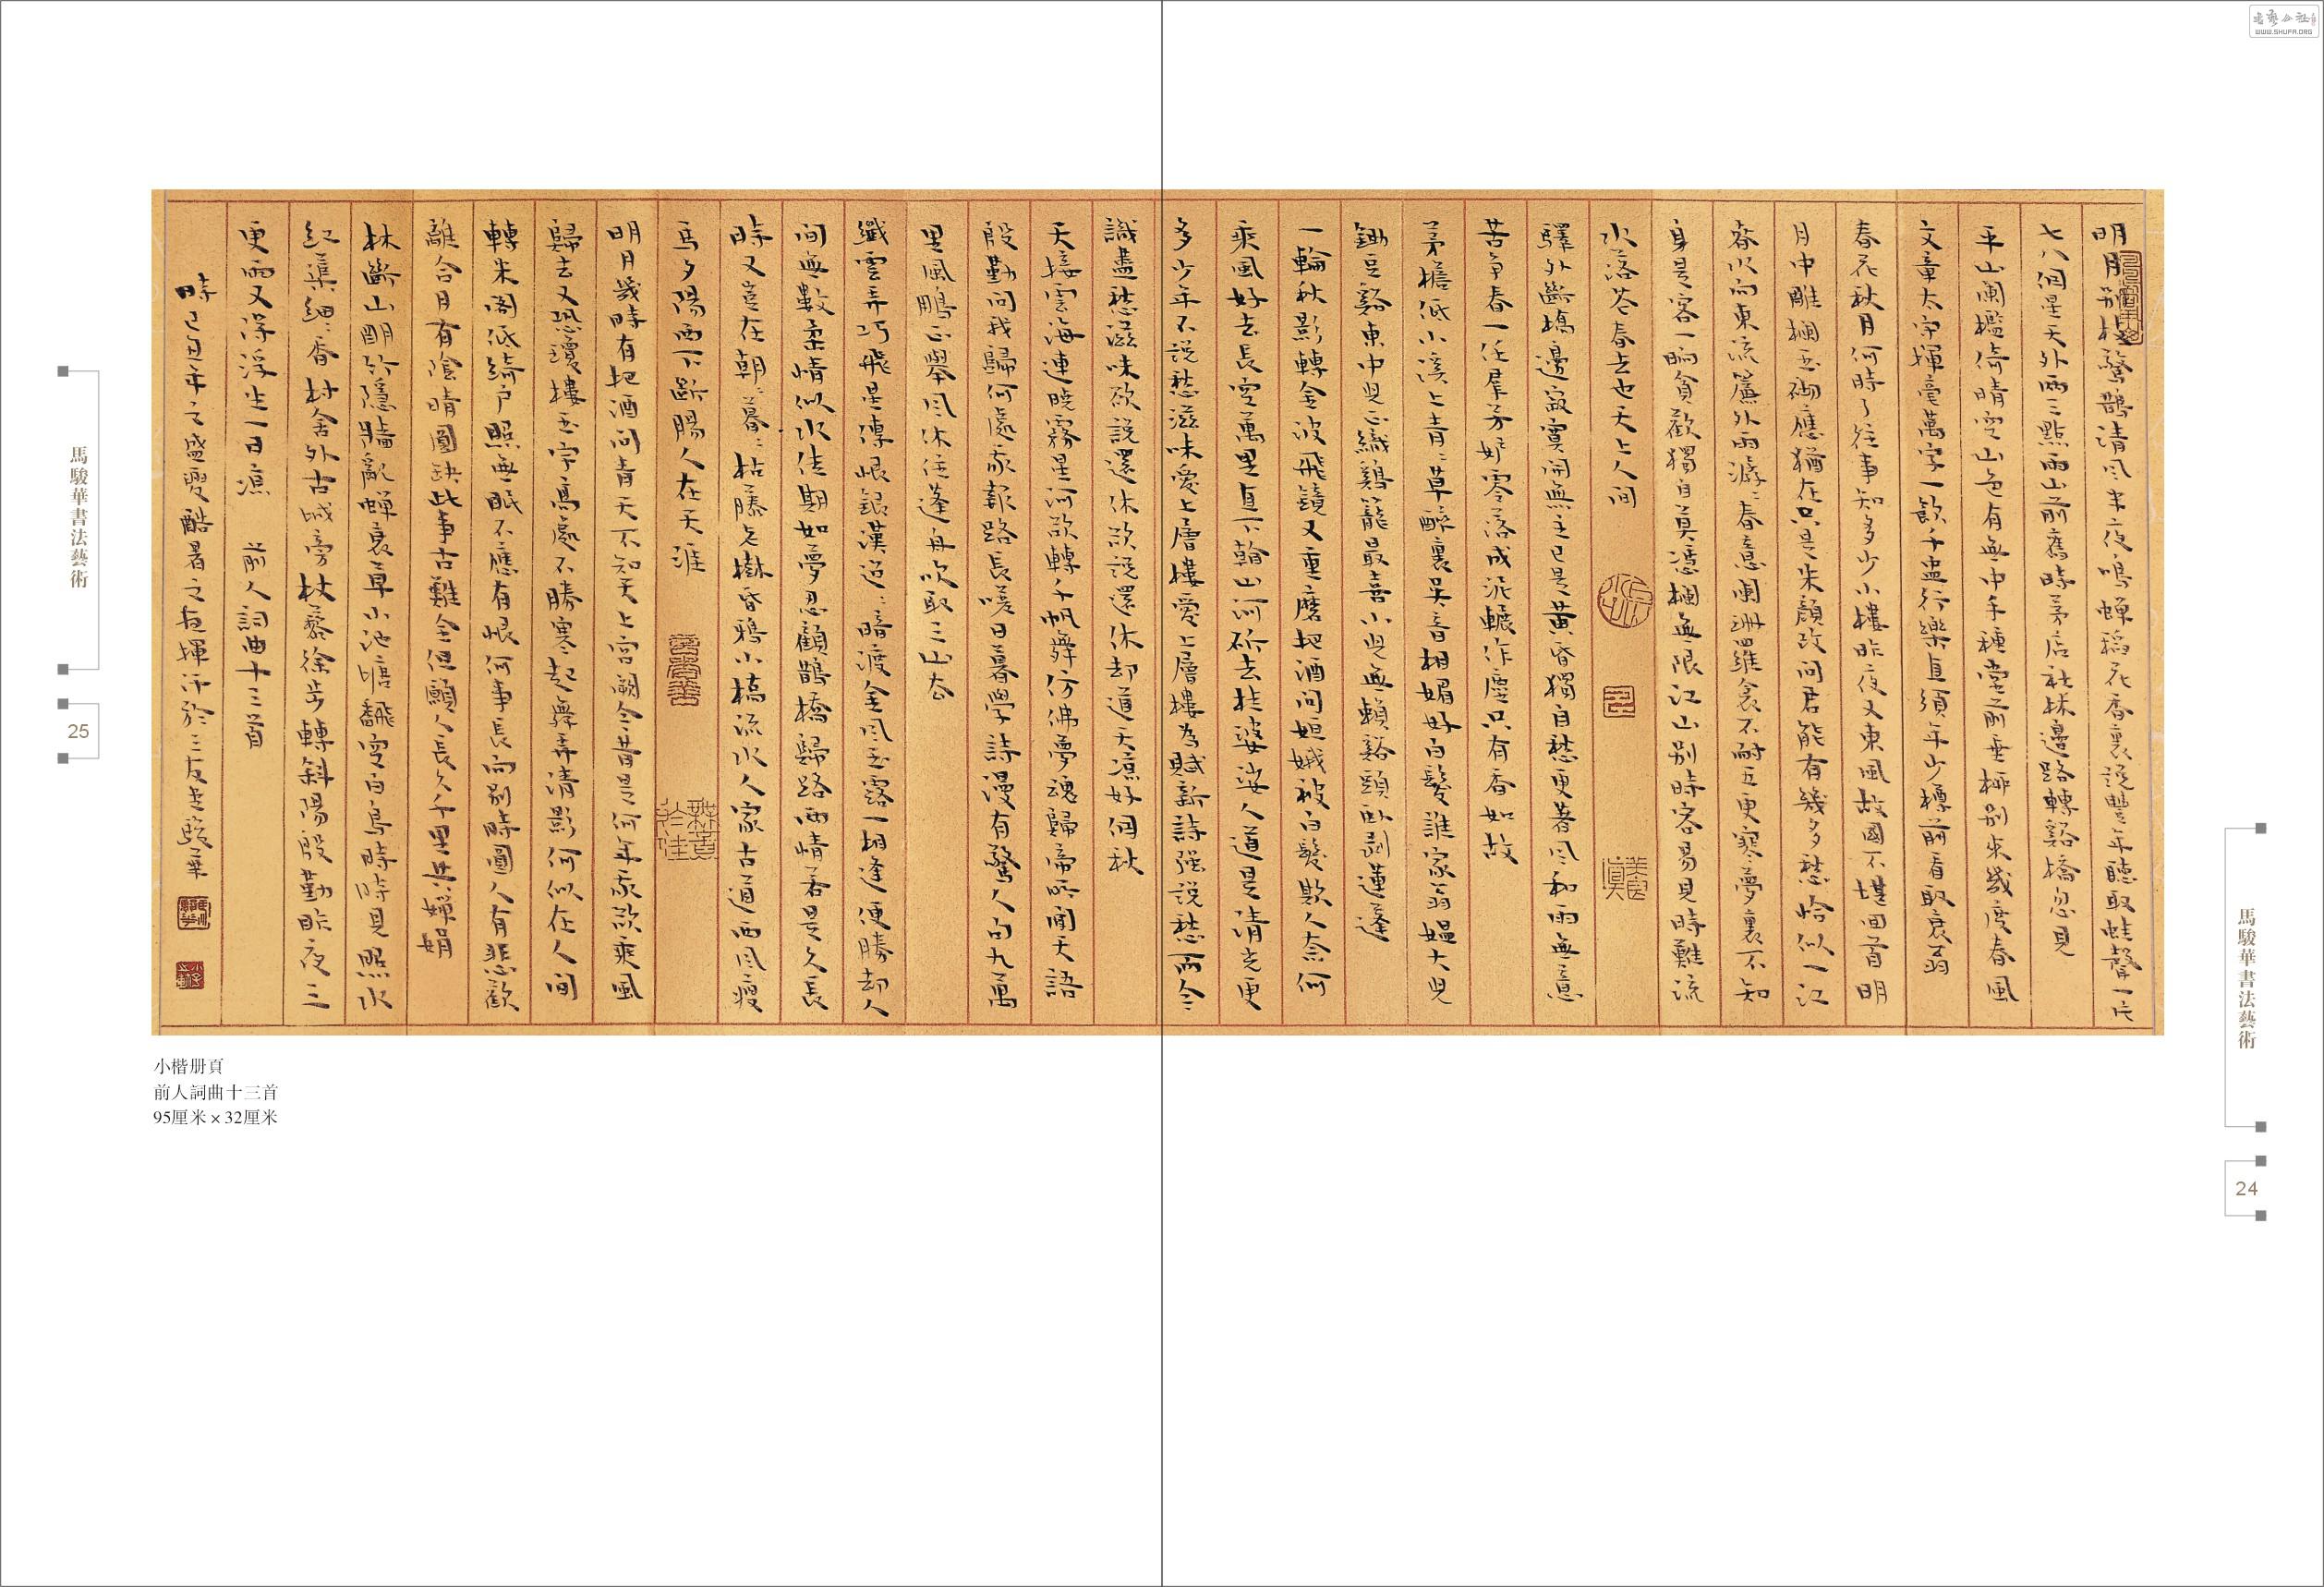 明月別枝驚鵲清風半夜鳴蟬稻花香裏説豐年聽取蛙聲一片
七八個星天外兩三點雨山前舊時茅店社林邊路轉谿橋忽見
平山闌檻倚晴空山色有無中手種堂前垂柳別來幾度春風
文章太守揮毫萬字一飲千盅行樂直須年少樽前看取衰翁
春花秋月何時了往事知多少小樓昨夜又東風故國不堪回首明
月中雕欄玉砌應猶在只是朱顏改問君能有幾多愁恰似一江
春水向東流簾外雨潺〻春意闌珊羅衾不耐五更寒夢裏不知
身是客一晌貪歡獨自莫憑欄無限江山別時容易見時難流
水落花春去也天上人間
驛外斷橋邊寂寞開無主已是黃昏獨自愁更著風和雨無意
苦爭春一任羣芳妒零落成泥輾作塵只有香如故
茅檐低小溪上青〻草醉裏吳音相媚好白髮誰家翁媼大兒
鋤豆谿東中兒正織鷄籠最喜小兒無賴谿頭卧剥蓮蓬
一輪秋影轉金波飛鏡又重磨把酒問姮娥被白髮欺人奈何
乘風好去長空萬里直下翰山河斫去桂婆娑人道是清光更
多少年不説愁滋味愛上層樓愛上層樓為賦新詩强説愁而今
識盡愁滋味欲説還休欲説還休却道天凉好個秋
天接雲海連曉霧星河欲轉千帆舞仿佛夢魂歸帝所聞天語
殷勤問我歸何處我報路長嗟日暮學詩漫有驚人句九萬
里風鵬正舉風休住蓬舟吹取三山去
纖雲弄巧飛星傳恨銀漢迢〻暗渡金風玉露一相逢便勝却人
間無數柔情似水佳期如夢忍顧鵲橋歸路兩情若是久長
時又豈在朝〻暮〻枯藤老樹昏鴉小橋流水人家古道西風瘦
馬夕陽西下斷腸人在天涯
明月幾時有把酒問青天不知天上宮闕今昔是何年我欲乘風
歸去又恐瓊樓玉宇高處不勝寒起舞弄清影何似在人間
轉朱閣低綺户照無眠不應有恨何事長向別時圓人有悲歡
離合月有陰晴圓缺此事古難全但願人長久千里共嬋娟
林斷山明竹隱牆亂蟬衰草小池塘翻空白鳥時時見照水
紅蕖細〻香村舍外古城旁杖藜徐步轉斜陽殷勤昨夜三
更雨又得浮生一日凉 前人詞曲十三首
時己丑年之盛夏酷暑之夜揮汗於三友堂駿華
小楷册頁
前人詞曲十三首
95厘米×32厘米
馬駿華書法藝術
25
馬駿華書法藝術
24
WWW.SHUFA.ORG